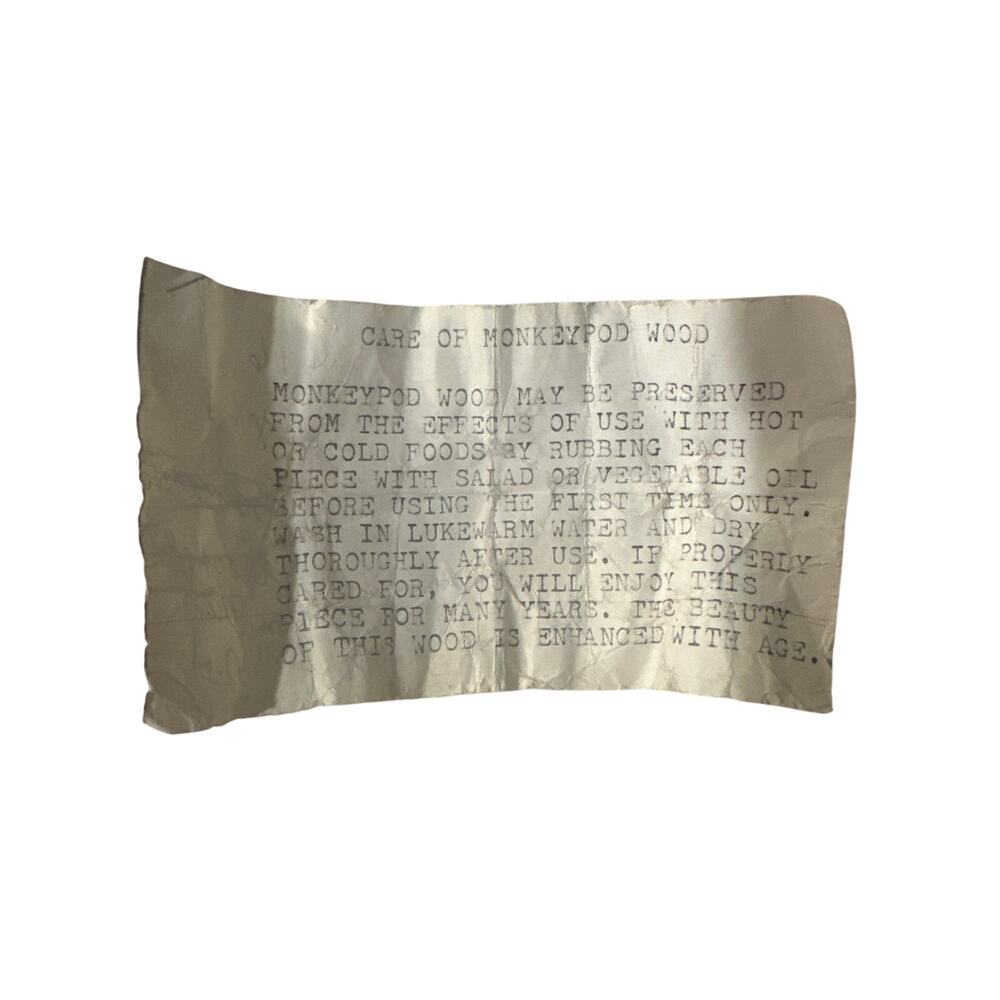 CARE OF MONKEYPOD WOOD
MONKEYPOD WOOD MAY BE PRESERVED
FROM THE EFFECTS OF USE WITH HOT
OR COLD FOODS BY RUBBING EACH
PIECE WITH SALAD OR VEGETABLE OIL
BEFORE USING THE FIRST TIME ONLY.
WASH IN LUKEWARM WATER AND DRY
THOROUGHLY AFTER USE. IF PROPERLY
CARED FOR, YOU WILL ENJOY THIS
PIECE FOR MANY YEARS. THE BEAUTY
OF THIS WOOD IS ENHANCED WITH AGE.